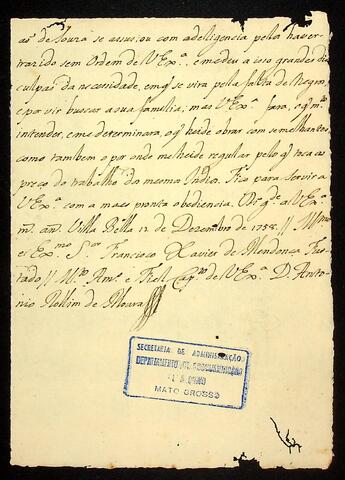 as de Souza se assustou com a deligencia pella haver
trazido sem Ordem de V Exª, e me deu a isso grandes dis
culpas da necessidade, em q̃ se vira pella falta de Negros,
e por vir buscar a sua familia, mas V Exª fará, o q̃ mˢ
intender, e me determinara, o q̃ heide obrar com semelhantes
como tambem o por onde me heide regular pello q̃ toca ao
preço do trabalho do mesmo Indio. Fico para servir a
V Exª com a mais prompta obediencia. Dˢ gᵈᵉ a V Exª
mˢ anˢ Villa Bella 12 de Dezembro de 1758 //
Exᵐᵒ Sᵒʳ Francisco Xavier de Mendonça Fur
tado // Mᵗᵒ Amᵒ e Fiel Capᵗᵒ de V Exª D. Anto
nio Rollim de Moura
SECRETARIA DE ADMINISTRAÇÃO
DEPARTAMENTO DE DOCUMENTAÇÃO
MATO GROSSO